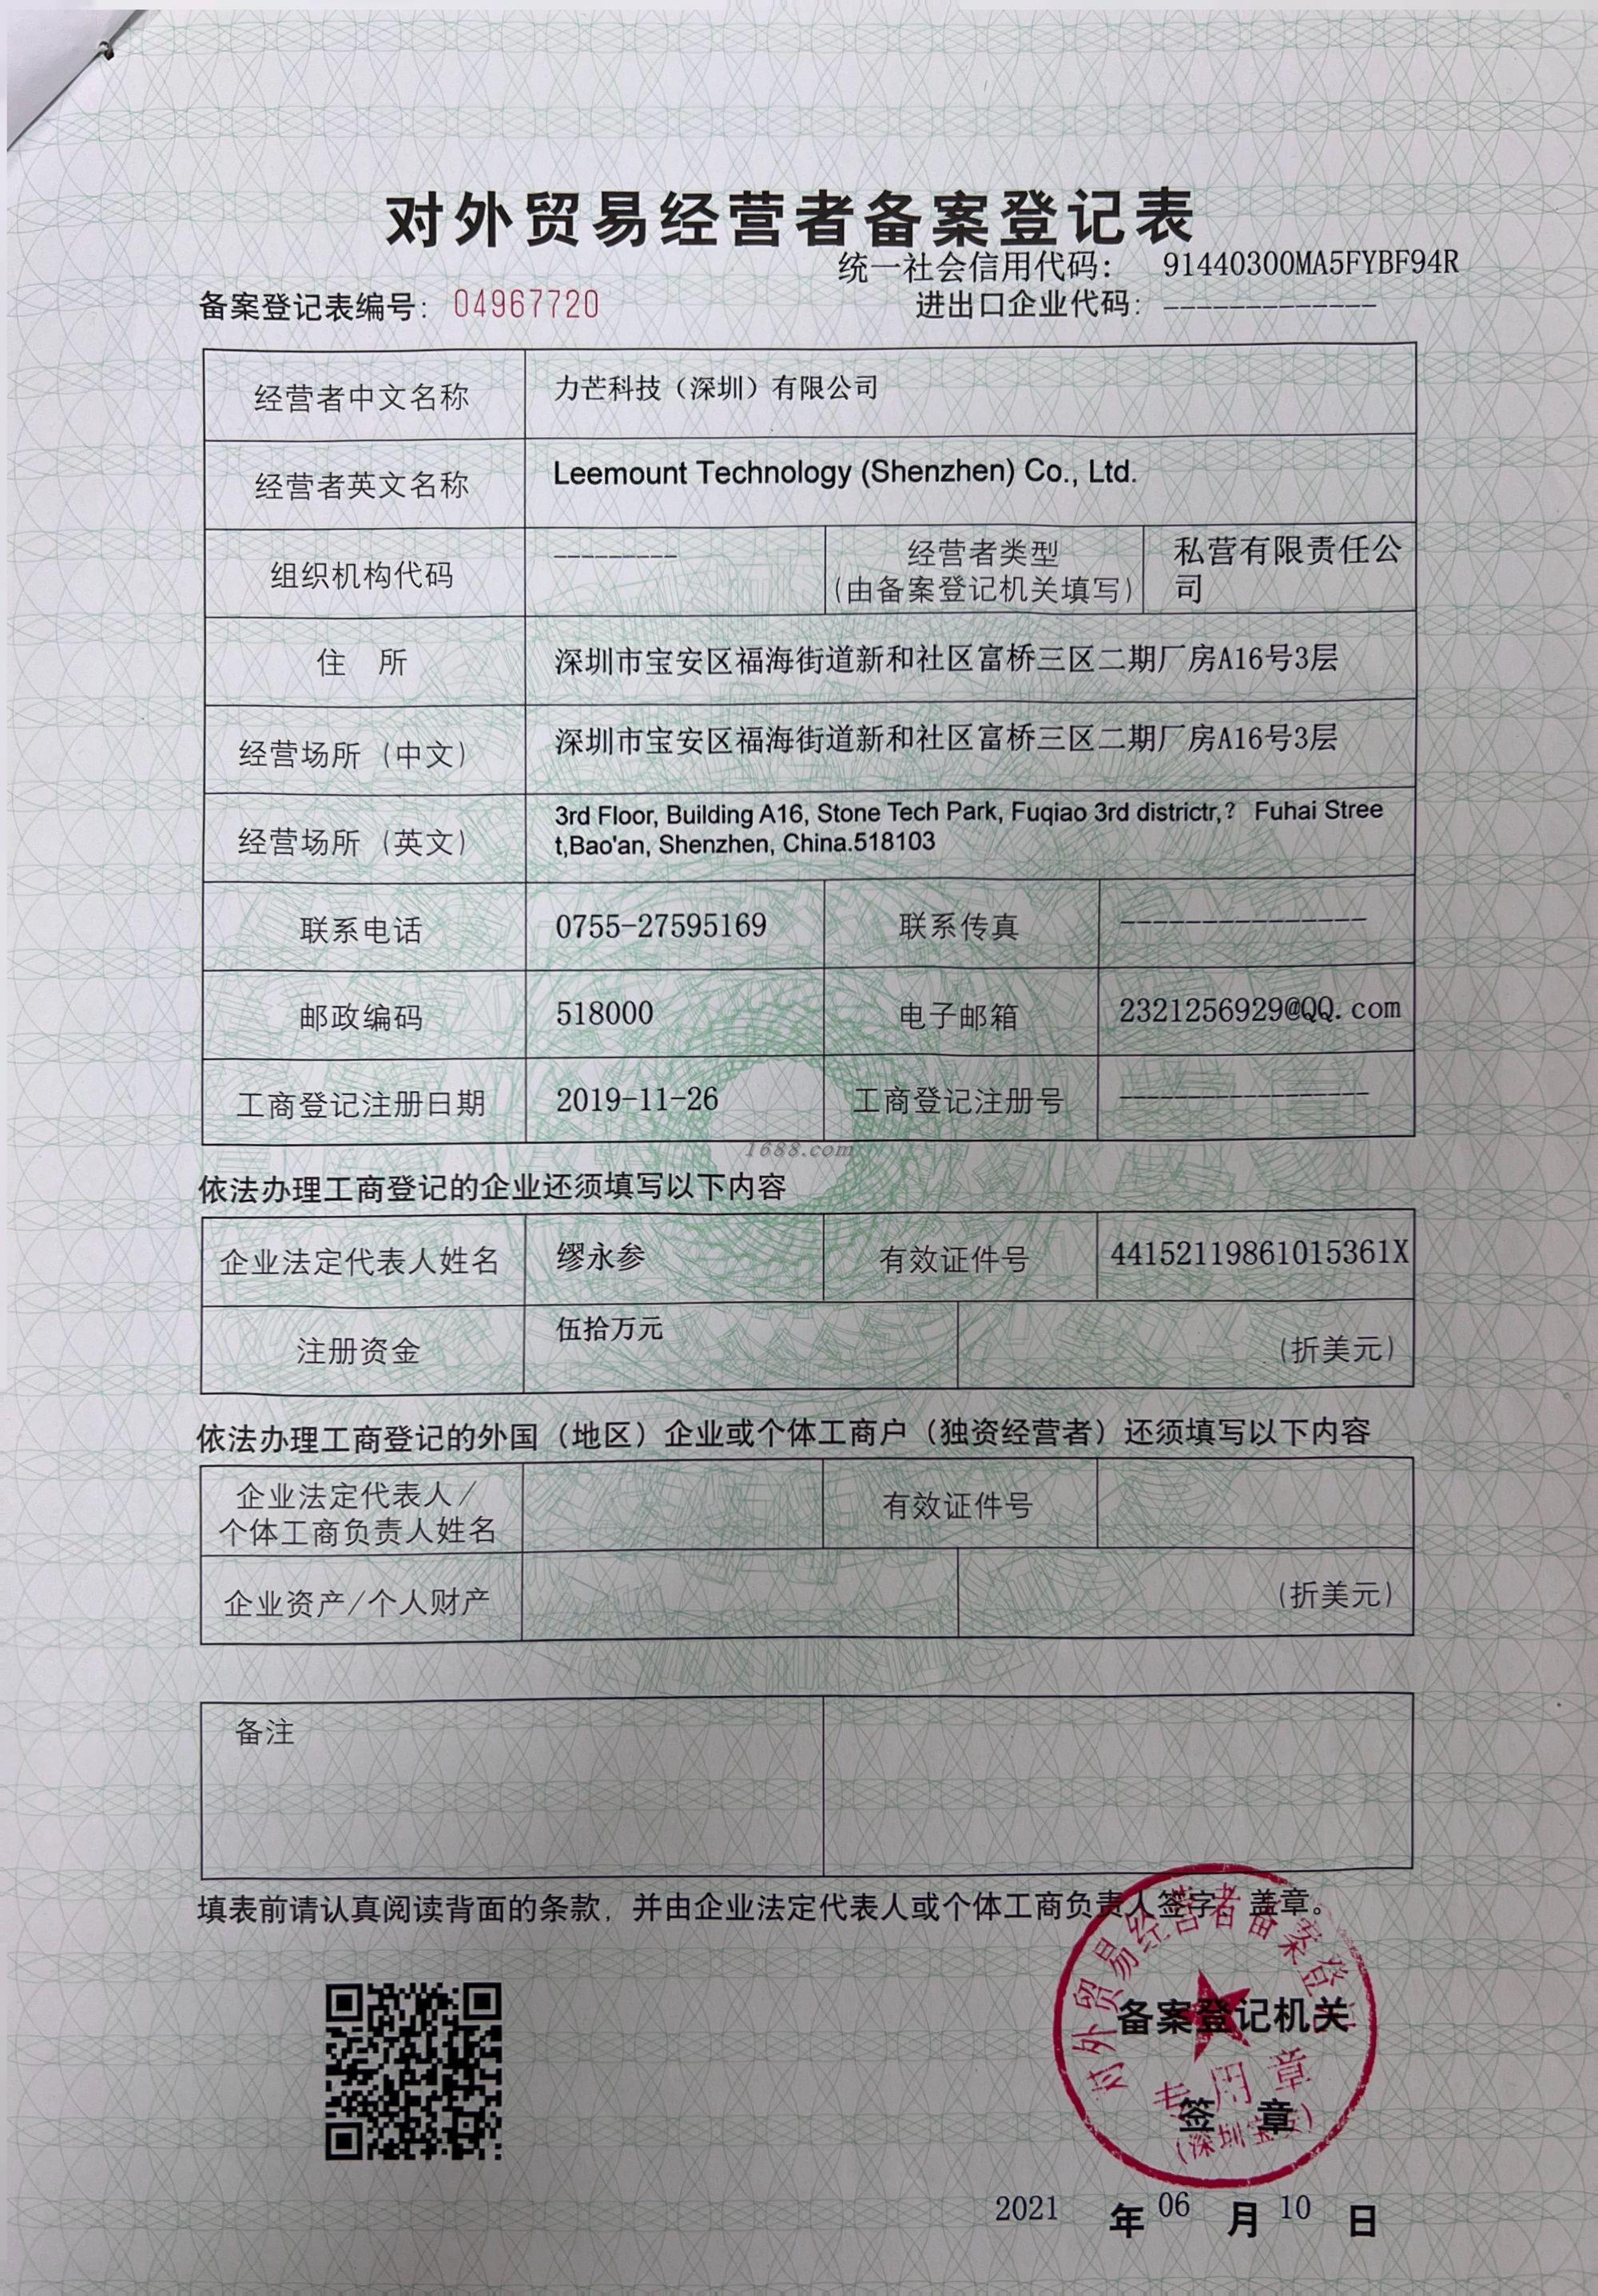 对外贸易经营者备案登记表
统一社会信用代码： 91440300MA5FYBF94R
备案登记表编号： 04967720
进出口企业代码： -------------
经营者中文名称 力芒科技（深圳）有限公司
经营者英文名称 Leemount Technology (Shenzhen) Co., Ltd.
组织机构代码 --------- 经营者类型 私营有限责任公
(由备案登记机关填写) 司
住 所 深圳市宝安区福海街道新和社区富桥三区二期厂房A16号3层
经营场所（中文） 深圳市宝安区福海街道新和社区富桥三区二期厂房A16号3层
经营场所（英文） 3rd Floor, Building A16, Stone Tech Park, Fuqiao 3rd districtr,? Fuhai Stree
t,Bao'an, Shenzhen, China.518103
联系电话 0755-27595169 联系传真 ---------------
邮政编码 518000 电子邮箱 2321256929@QQ.com
工商登记注册日期 2019-11-26 工商登记注册号 ---------------
1688.com
依法办理工商登记的企业还须填写以下内容
企业法定代表人姓名 缪永参 有效证件号 44152119861015361X
注册资金 伍拾万元 (折美元)
依法办理工商登记的外国（地区）企业或个体工商户（独资经营者）还须填写以下内容
企业法定代表人/
个体工商负责人姓名 有效证件号
企业资产/个人财产 (折美元)
备注
填表前请认真阅读背面的条款，并由企业法定代表人或个体工商负责人签字、盖章。
对外贸易经营者备案登记
备案登记机关
专用章
签 章
(深圳宝安)
2021 年 06 月 10 日